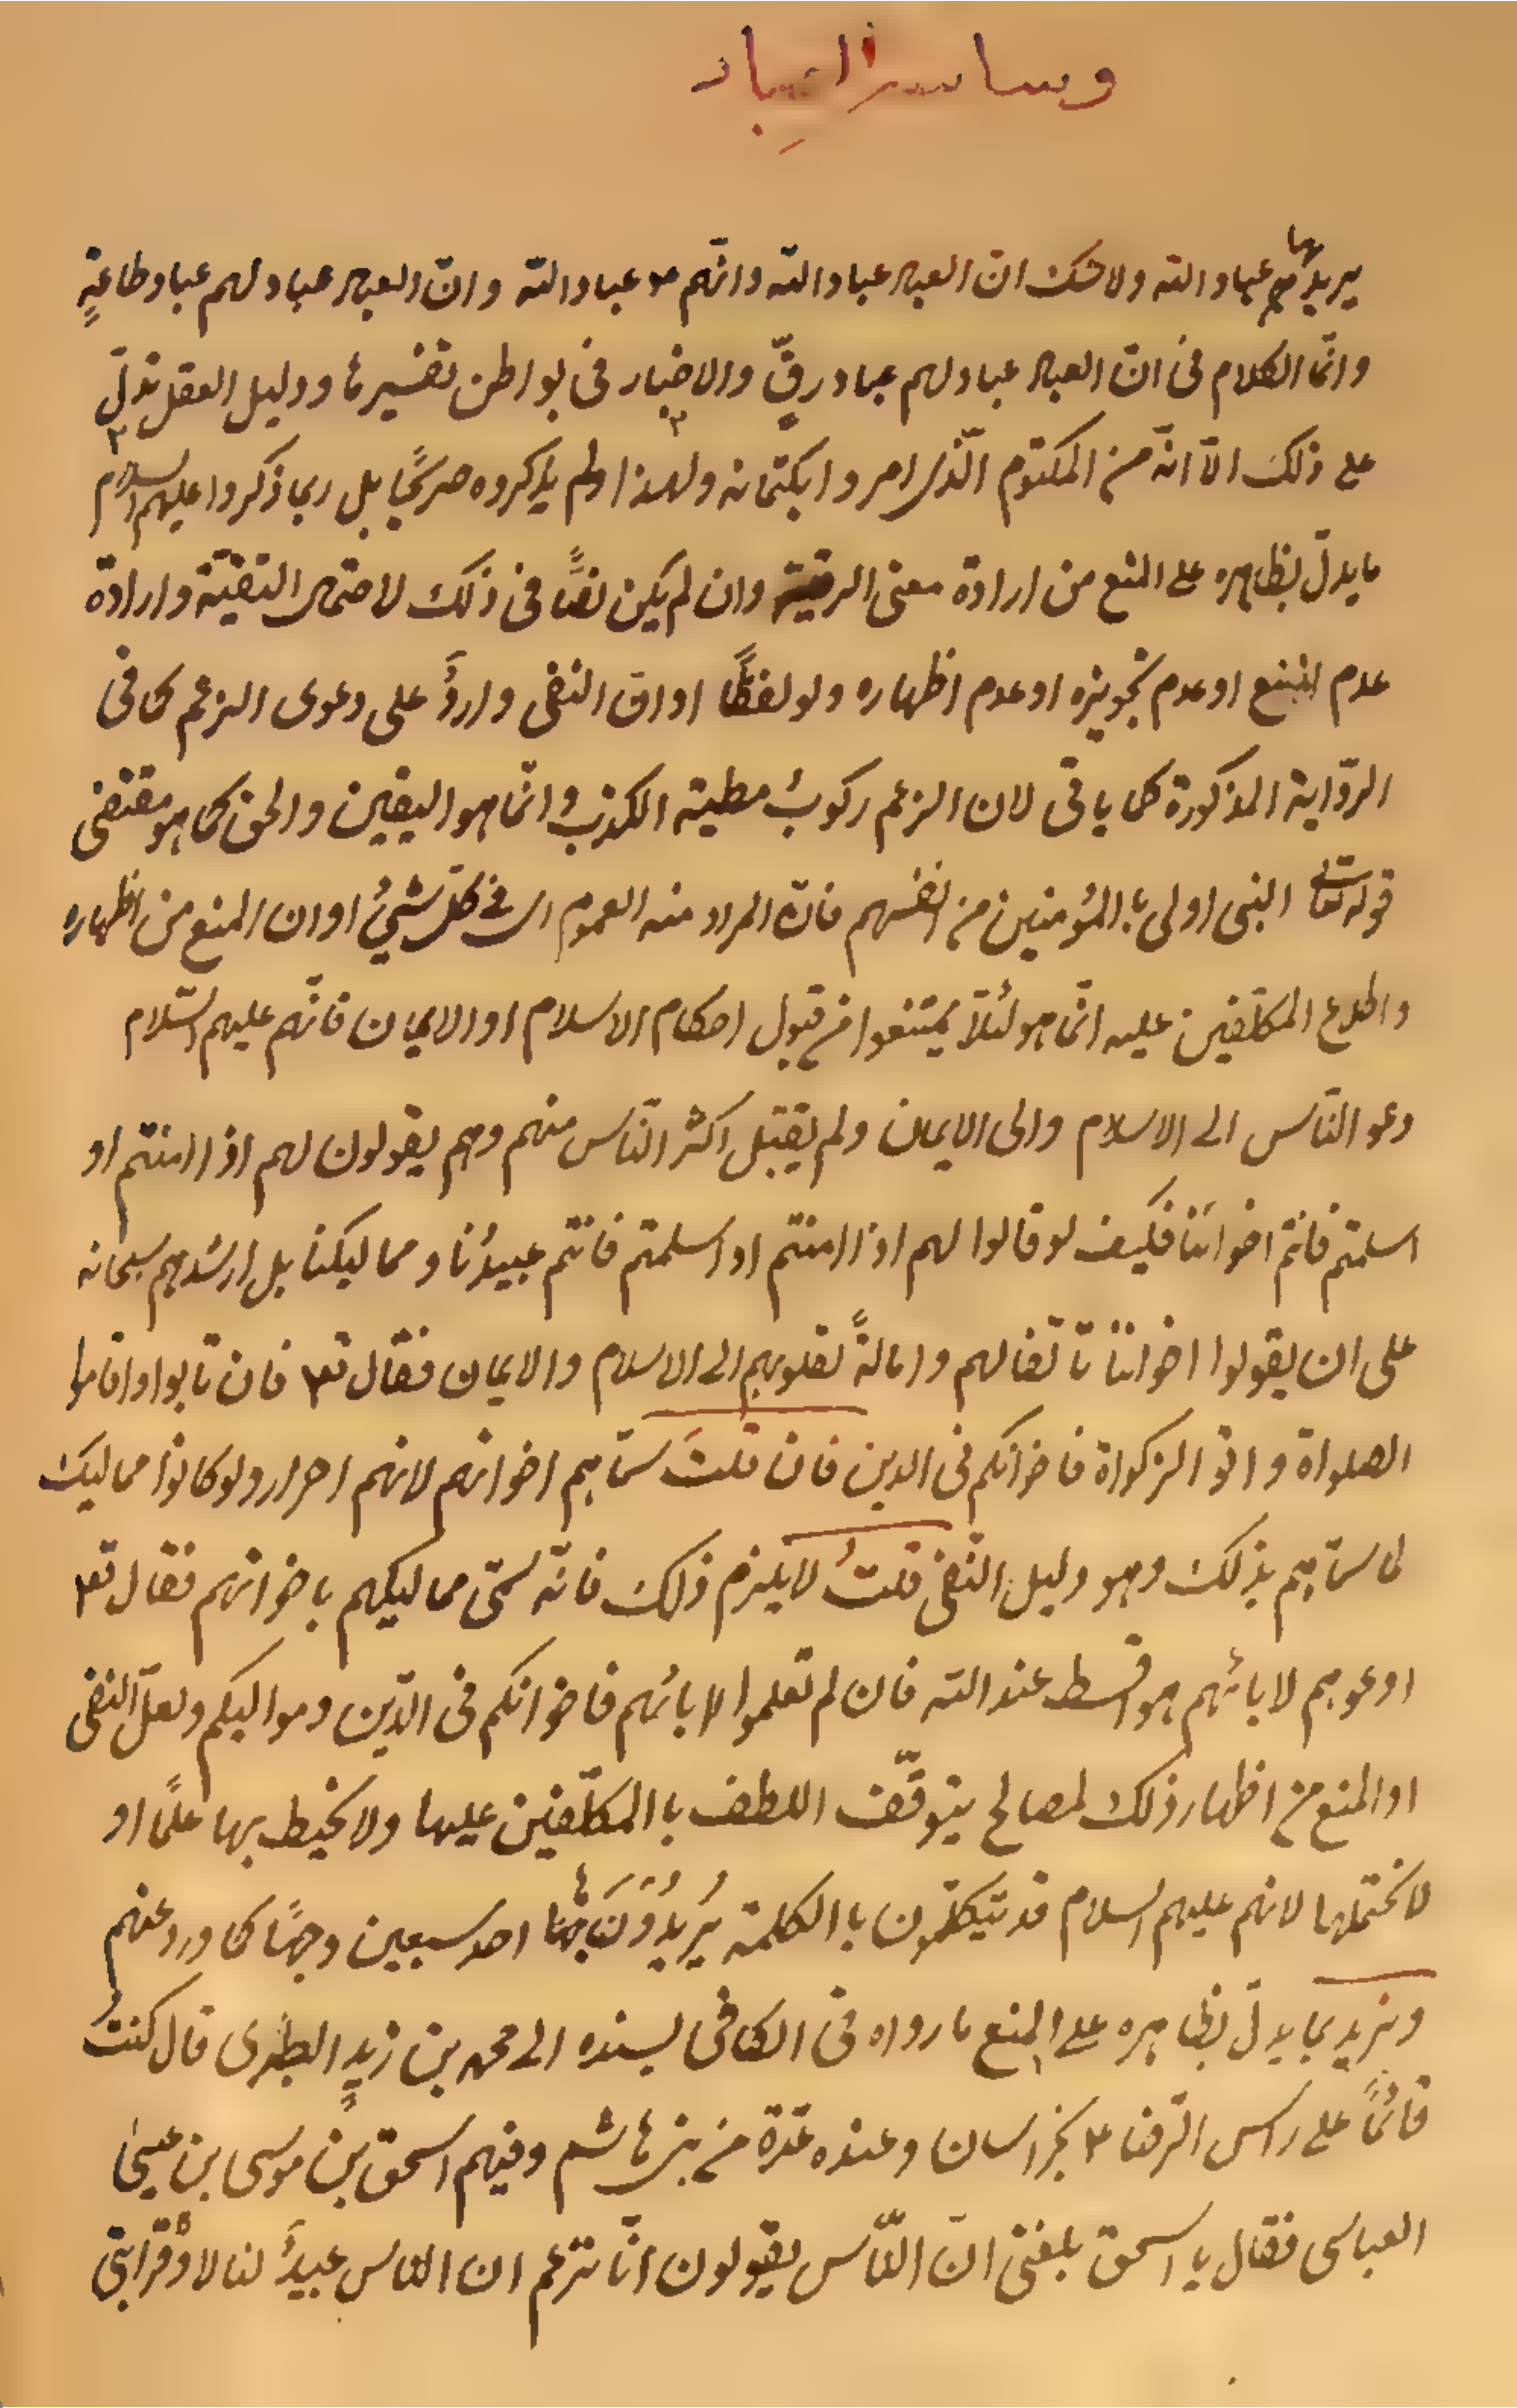 وساير العِباد
يريد بها عباد الله ولا شك ان العباد عباد الله وانّهم عباد الله وانّ العباد عباد لهم عباد طاعةٍ
وانّما الكلام فى انّ العباد عباد لهم عباد رقٍّ والاخبار فى بواطن تفسيرها ودليل العقل تدلّ
على ذلك الّا انّه من المكتوم الّذى امروا بكتمانه ولهذا ولم يذكروه صريحًا بل ربما ذكروا عليهم السلام
ما يدلّ بظاهره على المنع من ارادة معنى الرقية وان لم يكن نصًّا فى ذلك لاحتمال التقيّة وارادة
عدم المنع او عدم تجويزه او عدم اظهاره ولو لفظًا او انّ النفى واردٌ على دعوى الزعم كما فى
الرّواية المذكورة كما ياتى لان الزعم ركوبُ مطية الكذب وانّما هو اليقين والحق كما هو مقتضى
قوله تعالى النبى اولى باالمؤمنين من انفسهم فانّ المراد منه العموم اى فى كلّ شئٍ او ان المنع من اظهاره
واطلاع المكلّفين عليه انّما هو لئلّا يمتنعوا من قبول احكام الاسلام او الايمان فانّهم عليهم السّلام
دعو النّاس الى الاسلام والى الايمان ولم يقبل اكثر النّاس منهم وهم يقولون لهم اذا امنتم او
اسلمتم فانتم اخواننا فكيف لو قالوا لهم اذا امنتم او اسلمتم فانتم عبيدُنا ومماليكنا بل ارشدهم سبحانه
على ان يقولوا اخواننا تالّفا لهم وامالةً لقلوبهم الى الاسلام والايمان فقال تعم فان تابوا واقاموا
الصلواة واتو الزكواة فاخوانكم فى الدين فان قلتَ سمّاهم اخوانهم لانهم احرار ولو كانوا مماليك
لما سمّاهم بذلك وهو دليل النّفى قلتُ لا يلزم ذلك فانّه سمّى مماليكهم باخوانهم فقال تعم
ادعوهم لابائهم هو اقسط عند الله فان لم تعلموا اباءهم فاخوانكم فى الدّين ومواليكم ولعلّ النفى
او المنع من اظهار ذلك لمصالح يتوقّف اللطف باالمكلّفين عليها ولا نحيط بها علمًا او
لا نحتملها لانهم عليهم السلام قد يتكلّمون باالكلمة يُريدُونَ بها احد سبعين وجهًا كما ورد عنهم
ونريد بما يدلّ بظاهره على المنع ما رواه فى الكافى بسنده الى محمد بن زيدٍ الطبرى قال كنتُ
قائمًا على راس الرّضا ع بخراسان وعنده عدّة من بنى هاشم وفيهم اسحق بن موسى بن عيسى
العباسى فقال يا اسحق بلغنى انّ النّاس يقولون انّا نزعم ان الناس عبيدٌ لنا لا وقرابتى